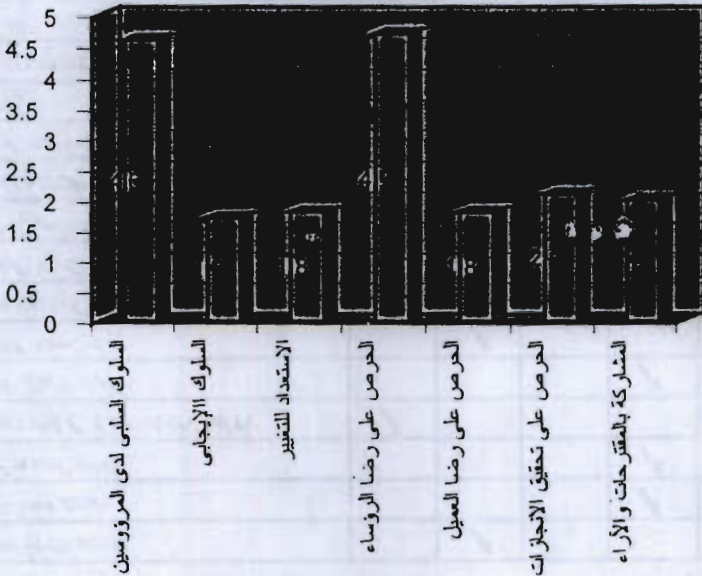 5
4.5
4
3.5
3
2.5
2
1.5
1
0.5
0
السلوك السلبى لدى المرؤوسين
السلوك الايجابى
الاستعداد للتغيير
الحرص على رضا الرؤساء
الحرص على رضا العميل
الحرص على تحقيق الانجازات
المشاركة بالمقترحات والآراء